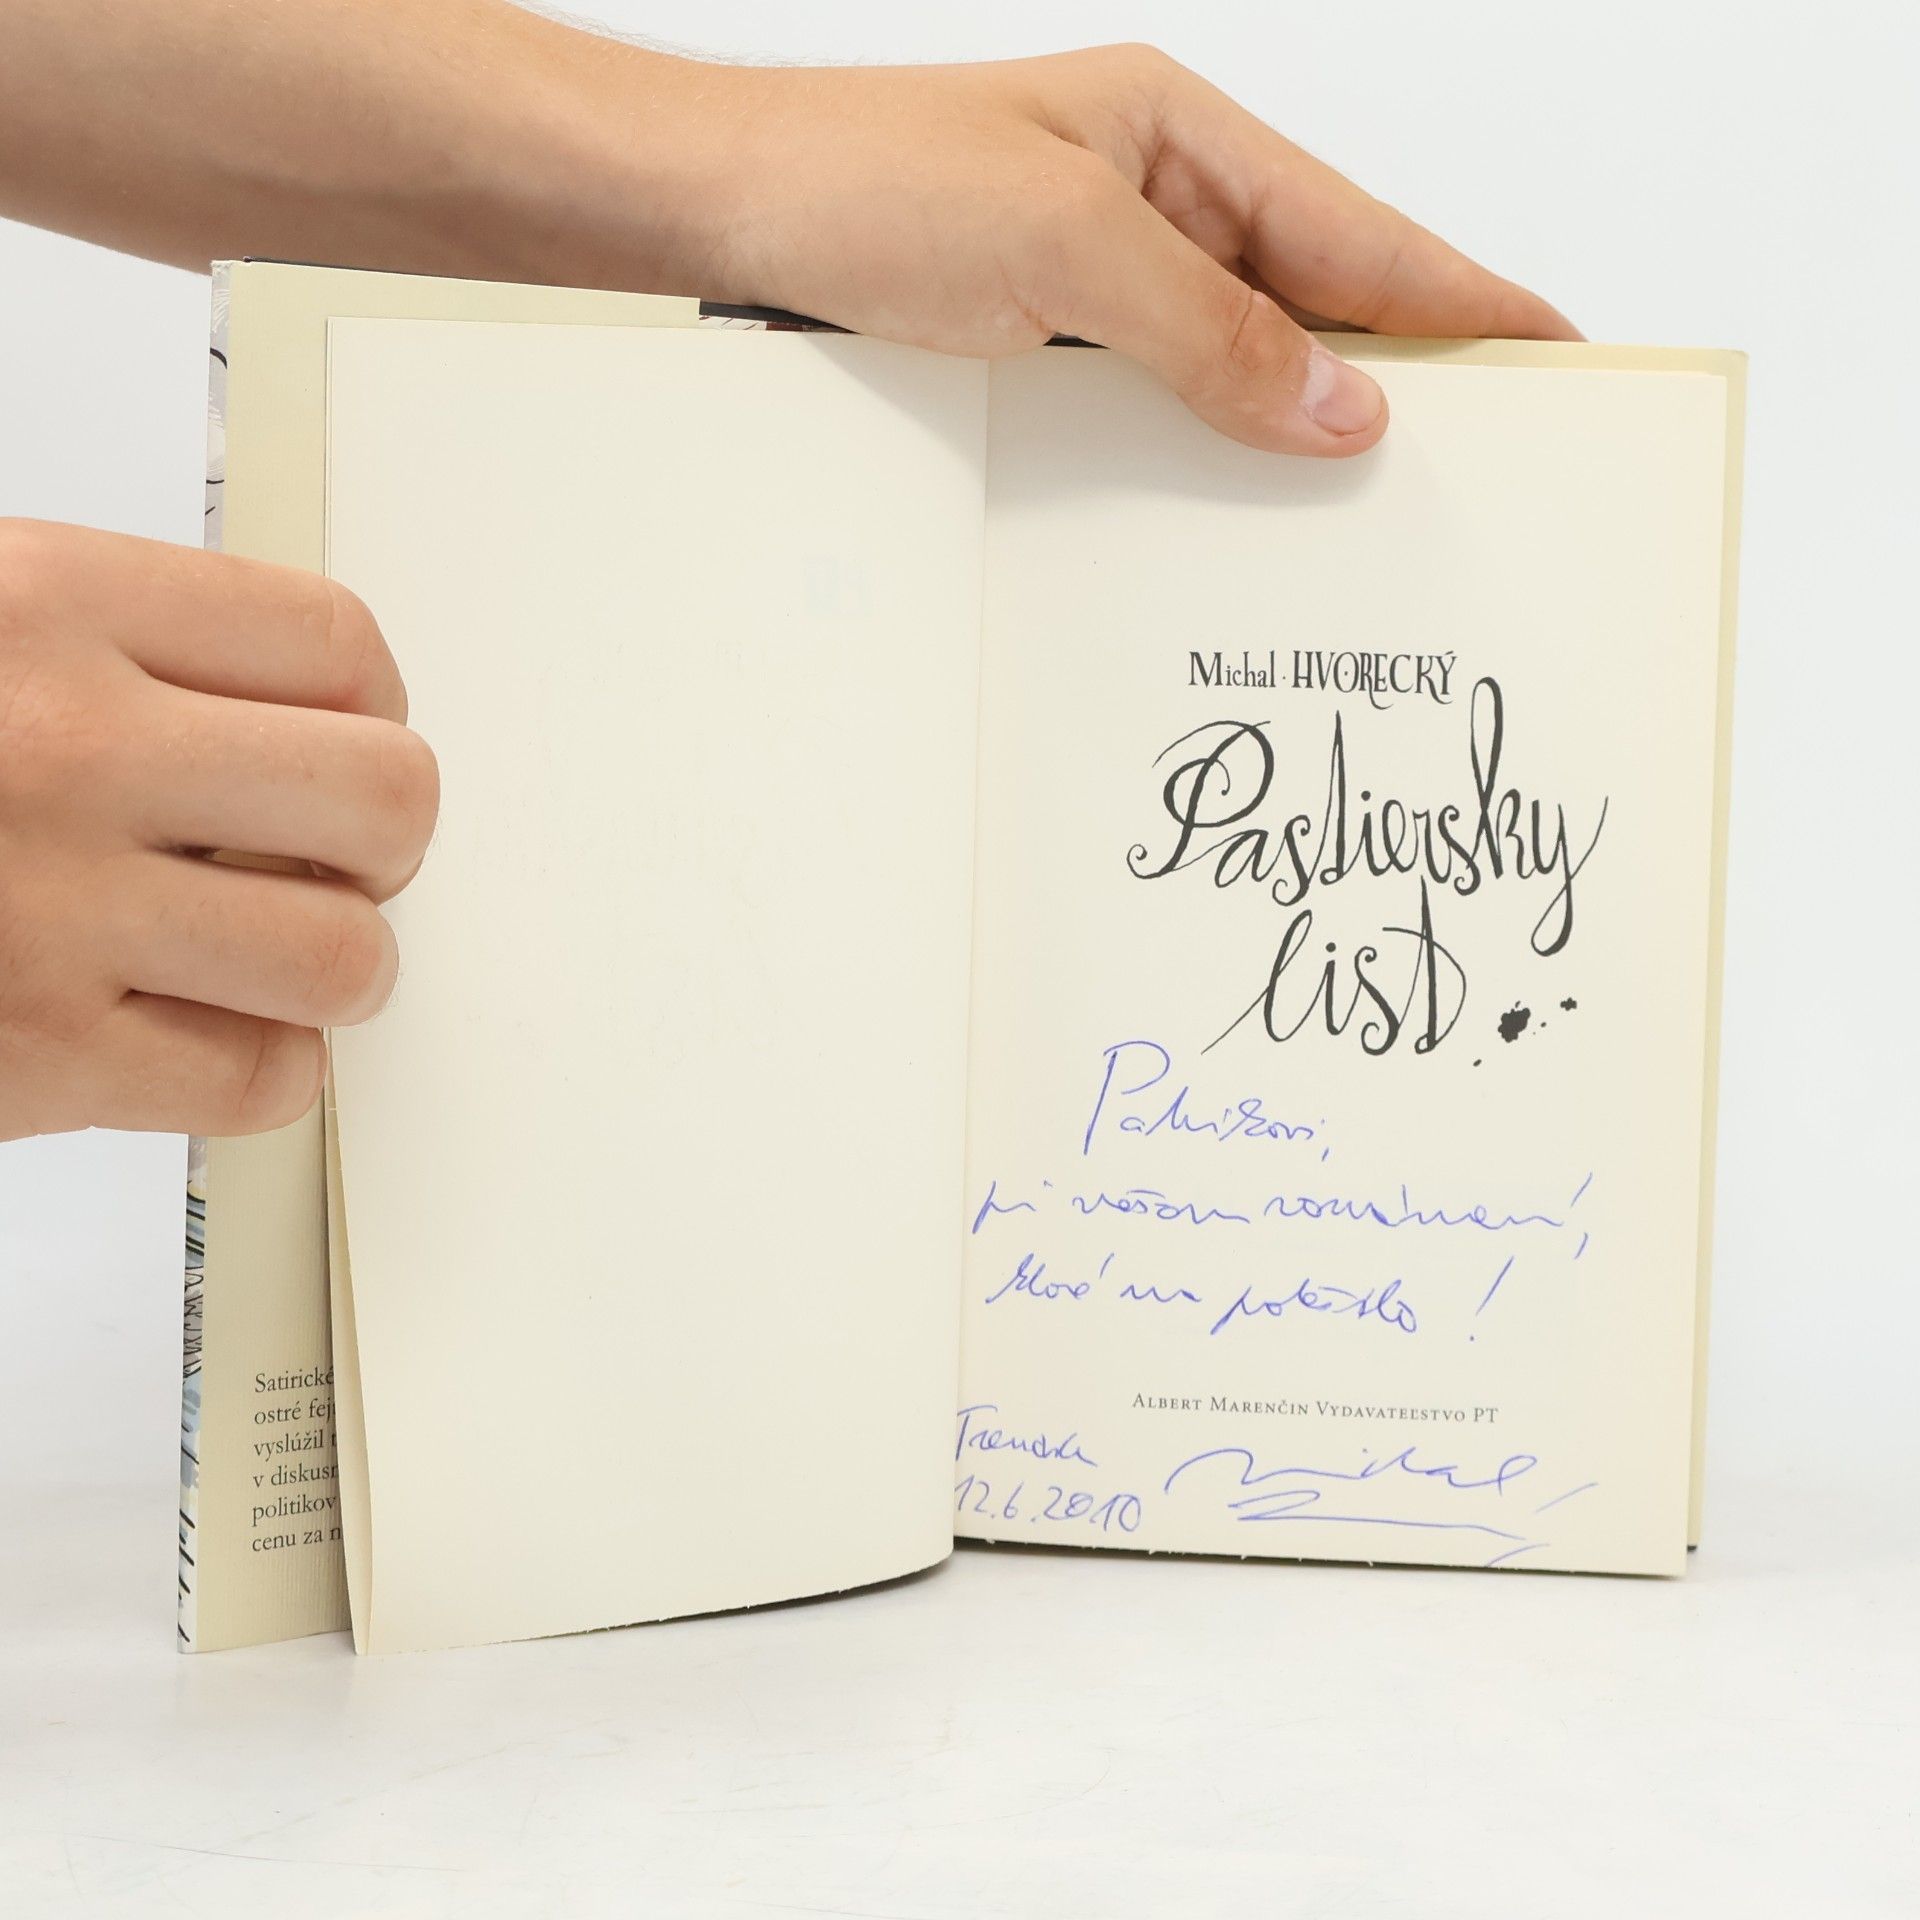 Satirické
ostré fej
vyslúžil t
v diskusn
politikov
cenu za n
Michal HVORECKÝ
Pastiersky
list
Patrikovi,
pri našom zoznámení,
ktoré ma potešilo!
Albert Marenčin Vydavateľstvo PT
12.6.2010
Michal